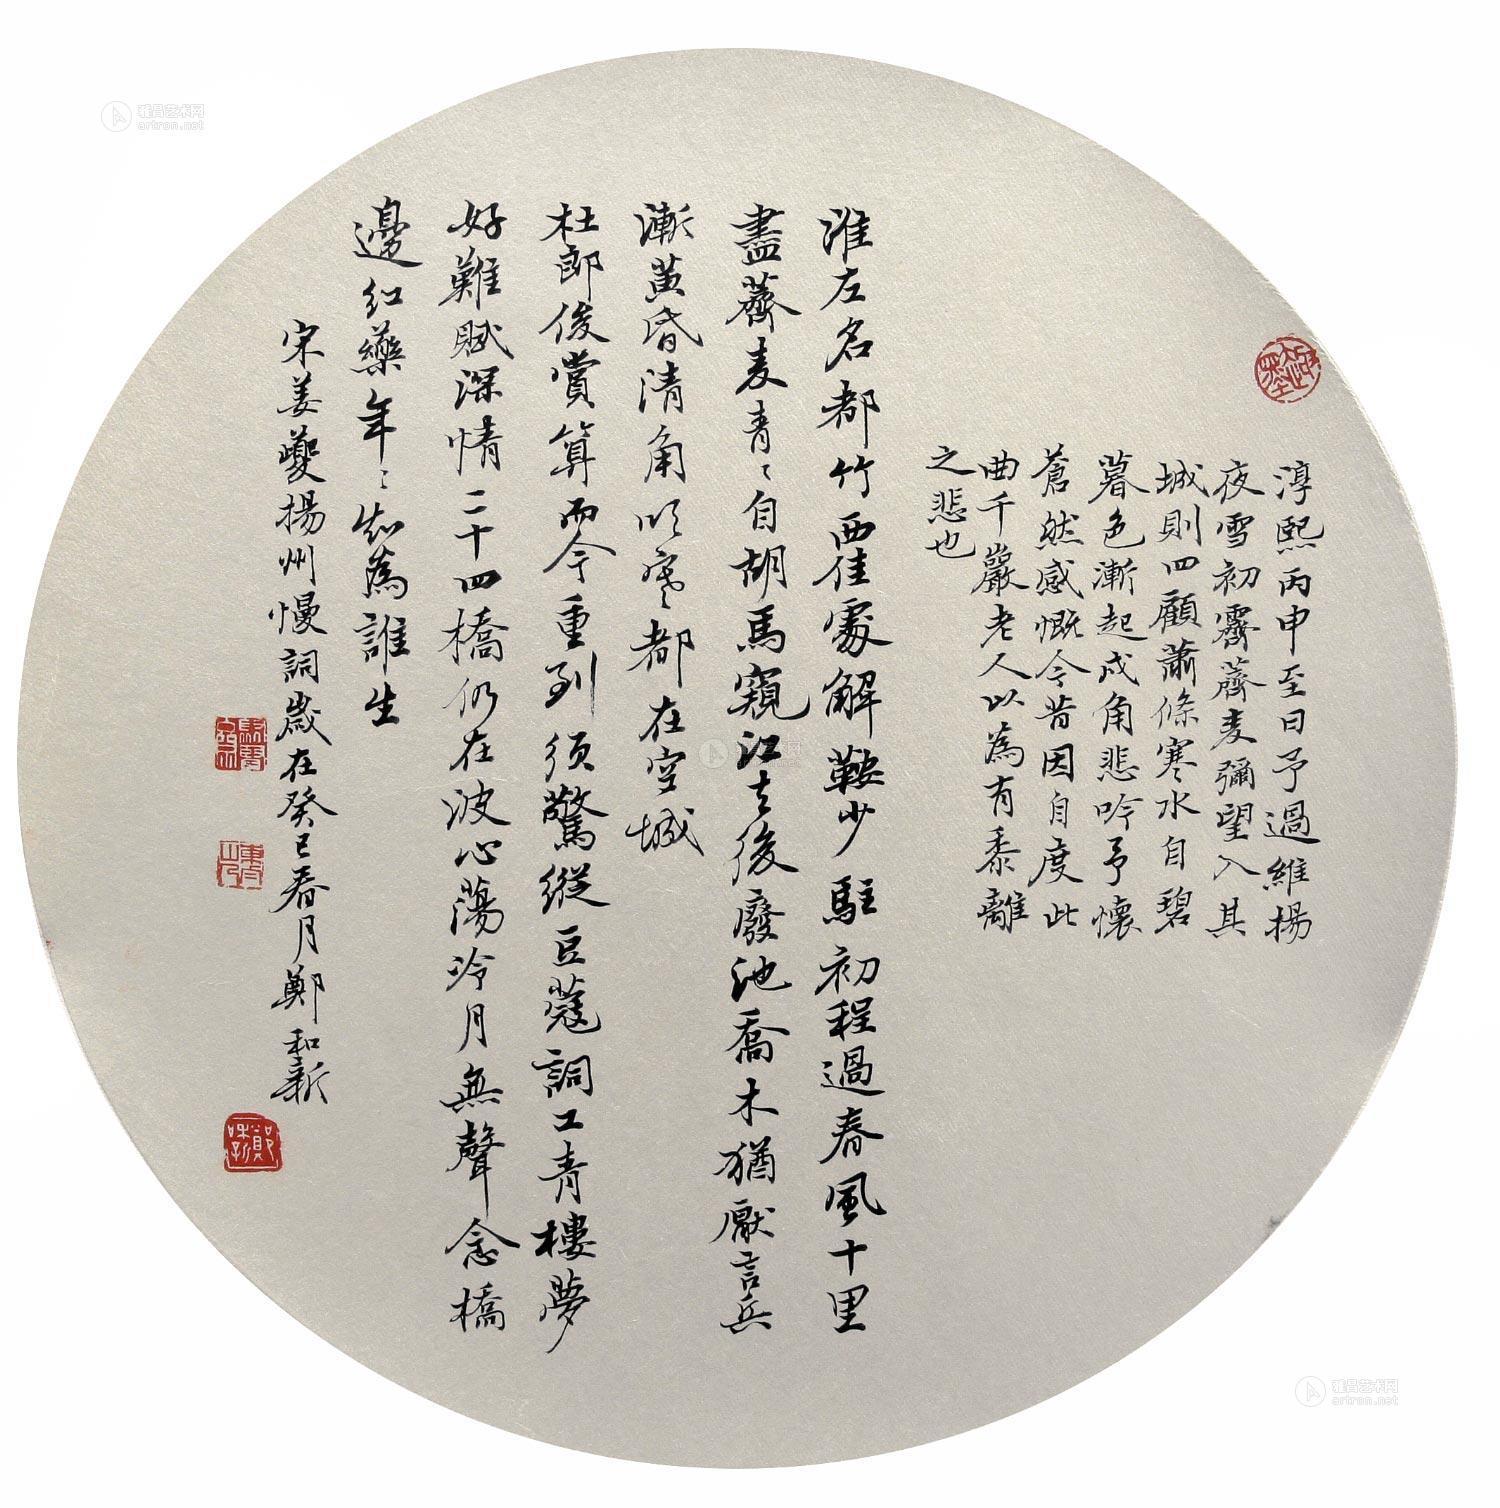 淳熙丙申至日予過維揚
夜雪初霽薺麦彌望入其
城則四顧蕭條寒水自碧
暮色漸起戍角悲吟予懷
蒼然感慨今昔因自度此
曲千巖老人以為有黍離
之悲也
淮左名都竹西佳處解鞍少駐初程過春風十里
盡薺麦青〻自胡馬窺江去後廢池喬木猶厭言兵
漸黄昏清角吹寒〻都在空城
杜郎俊賞算而今重到須驚縱豆蔻詞工青樓夢
好難賦深情二十四橋仍在波心蕩冷月無聲念橋
邊紅藥年〻知為誰生
宋姜夔揚州慢詞歲在癸巳春月鄭和新
雅昌艺术网
artron.net
雅昌艺术网
artron.net